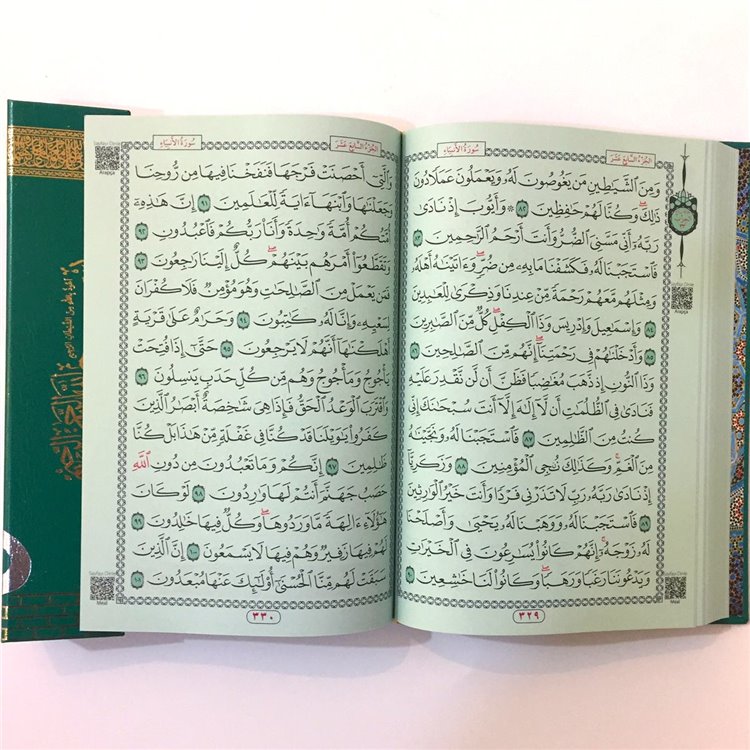 الجزء السابع عشر
سورة الأنبياء
وَمِنَ الشَّيَٰطِينِ مَن يَغُوصُونَ لَهُۥ وَيَعْمَلُونَ عَمَلًا دُونَ
ذَٰلِكَۖ وَكُنَّا لَهُمْ حَٰفِظِينَ ٨٢ ۞ وَأَيُّوبَ إِذْ نَادَىٰ
رَبَّهُۥٓ أَنِّى مَسَّنِىَ الضُّرُّ وَأَنتَ أَرْحَمُ الرَّٰحِمِينَ ٨٣
فَاسْتَجَبْنَا لَهُۥ فَكَشَفْنَا مَا بِهِۦ مِن ضُرٍّۖ وَءَاتَيْنَٰهُ أَهْلَهُۥ
وَمِثْلَهُم مَّعَهُمْ رَحْمَةً مِّنْ عِندِنَا وَذِكْرَىٰ لِلْعَٰبِدِينَ
٨٤ وَإِسْمَٰعِيلَ وَإِدْرِيسَ وَذَا الْكِفْلِۖ كُلٌّ مِّنَ الصَّٰبِرِينَ
٨٥ وَأَدْخَلْنَٰهُمْ فِى رَحْمَتِنَآۖ إِنَّهُم مِّنَ الصَّٰلِحِينَ ٨٦
وَذَا النُّونِ إِذ ذَّهَبَ مُغَٰضِبًا فَظَنَّ أَن لَّن نَّقْدِرَ عَلَيْهِ
فَنَادَىٰ فِى الظُّلُمَٰتِ أَن لَّآ إِلَٰهَ إِلَّآ أَنتَ سُبْحَٰنَكَ إِنِّى
كُنتُ مِنَ الظَّٰلِمِينَ ٨٧ فَاسْتَجَبْنَا لَهُۥ وَنَجَّيْنَٰهُ
مِنَ الْغَمِّۚ وَكَذَٰلِكَ نُۨجِى الْمُؤْمِنِينَ ٨٨ وَزَكَرِيَّآ
إِذْ نَادَىٰ رَبَّهُۥ رَبِّ لَا تَذَرْنِى فَرْدًا وَأَنتَ خَيْرُ الْوَٰرِثِينَ
٨٩ فَاسْتَجَبْنَا لَهُۥ وَوَهَبْنَا لَهُۥ يَحْيَىٰ وَأَصْلَحْنَا
لَهُۥ زَوْجَهُۥٓۚ إِنَّهُمْ كَانُوا۟ يُسَٰرِعُونَ فِى الْخَيْرَٰتِ
وَيَدْعُونَنَا رَغَبًا وَرَهَبًاۖ وَكَانُوا۟ لَنَا خَٰشِعِينَ ٩٠
٣٢٩
الجزء السابع عشر
سورة الأنبياء
وَالَّتِىٓ أَحْصَنَتْ فَرْجَهَا فَنَفَخْنَا فِيهَا مِن رُّوحِنَا
وَجَعَلْنَٰهَا وَابْنَهَآ ءَايَةً لِّلْعَٰلَمِينَ ٩١ إِنَّ هَٰذِهِۦٓ
أُمَّتُكُمْ أُمَّةً وَٰحِدَةً وَأَنَا۠ رَبُّكُمْ فَاعْبُدُونِ ٩٢
وَتَقَطَّعُوٓا۟ أَمْرَهُم بَيْنَهُمْۖ كُلٌّ إِلَيْنَا رَٰجِعُونَ ٩٣
فَمَن يَعْمَلْ مِنَ الصَّٰلِحَٰتِ وَهُوَ مُؤْمِنٌ فَلَا كُفْرَانَ
لِسَعْيِهِۦ وَإِنَّا لَهُۥ كَٰتِبُونَ ٩٤ وَحَرَٰمٌ عَلَىٰ قَرْيَةٍ
أَهْلَكْنَٰهَآ أَنَّهُمْ لَا يَرْجِعُونَ ٩٥ حَتَّىٰٓ إِذَا فُتِحَتْ
يَأْجُوجُ وَمَأْجُوجُ وَهُم مِّن كُلِّ حَدَبٍ يَنسِلُونَ ٩٦
وَاقْتَرَبَ الْوَعْدُ الْحَقُّ فَإِذَا هِىَ شَٰخِصَةٌ أَبْصَٰرُ الَّذِينَ
كَفَرُوا۟ يَٰوَيْلَنَا قَدْ كُنَّا فِى غَفْلَةٍ مِّنْ هَٰذَا بَلْ كُنَّا
ظَٰلِمِينَ ٩٧ إِنَّكُمْ وَمَا تَعْبُدُونَ مِن دُونِ اللَّهِ
حَصَبُ جَهَنَّمَ أَنتُمْ لَهَا وَٰرِدُونَ ٩٨ لَوْ كَانَ
هَٰٓؤُلَآءِ ءَالِهَةً مَّا وَرَدُوهَاۖ وَكُلٌّ فِيهَا خَٰلِدُونَ ٩٩
لَهُمْ فِيهَا زَفِيرٌ وَهُمْ فِيهَا لَا يَسْمَعُونَ ١٠٠ إِنَّ الَّذِينَ
سَبَقَتْ لَهُم مِّنَّا الْحُسْنَىٰٓ أُو۟لَٰٓئِكَ عَنْهَا مُبْعَدُونَ ١٠١
٣٣٠
Sayfayı Dinle
Arapça
Sayfayı Dinle
Meal
Sayfayı Dinle
Arapça
Sayfayı Dinle
Meal